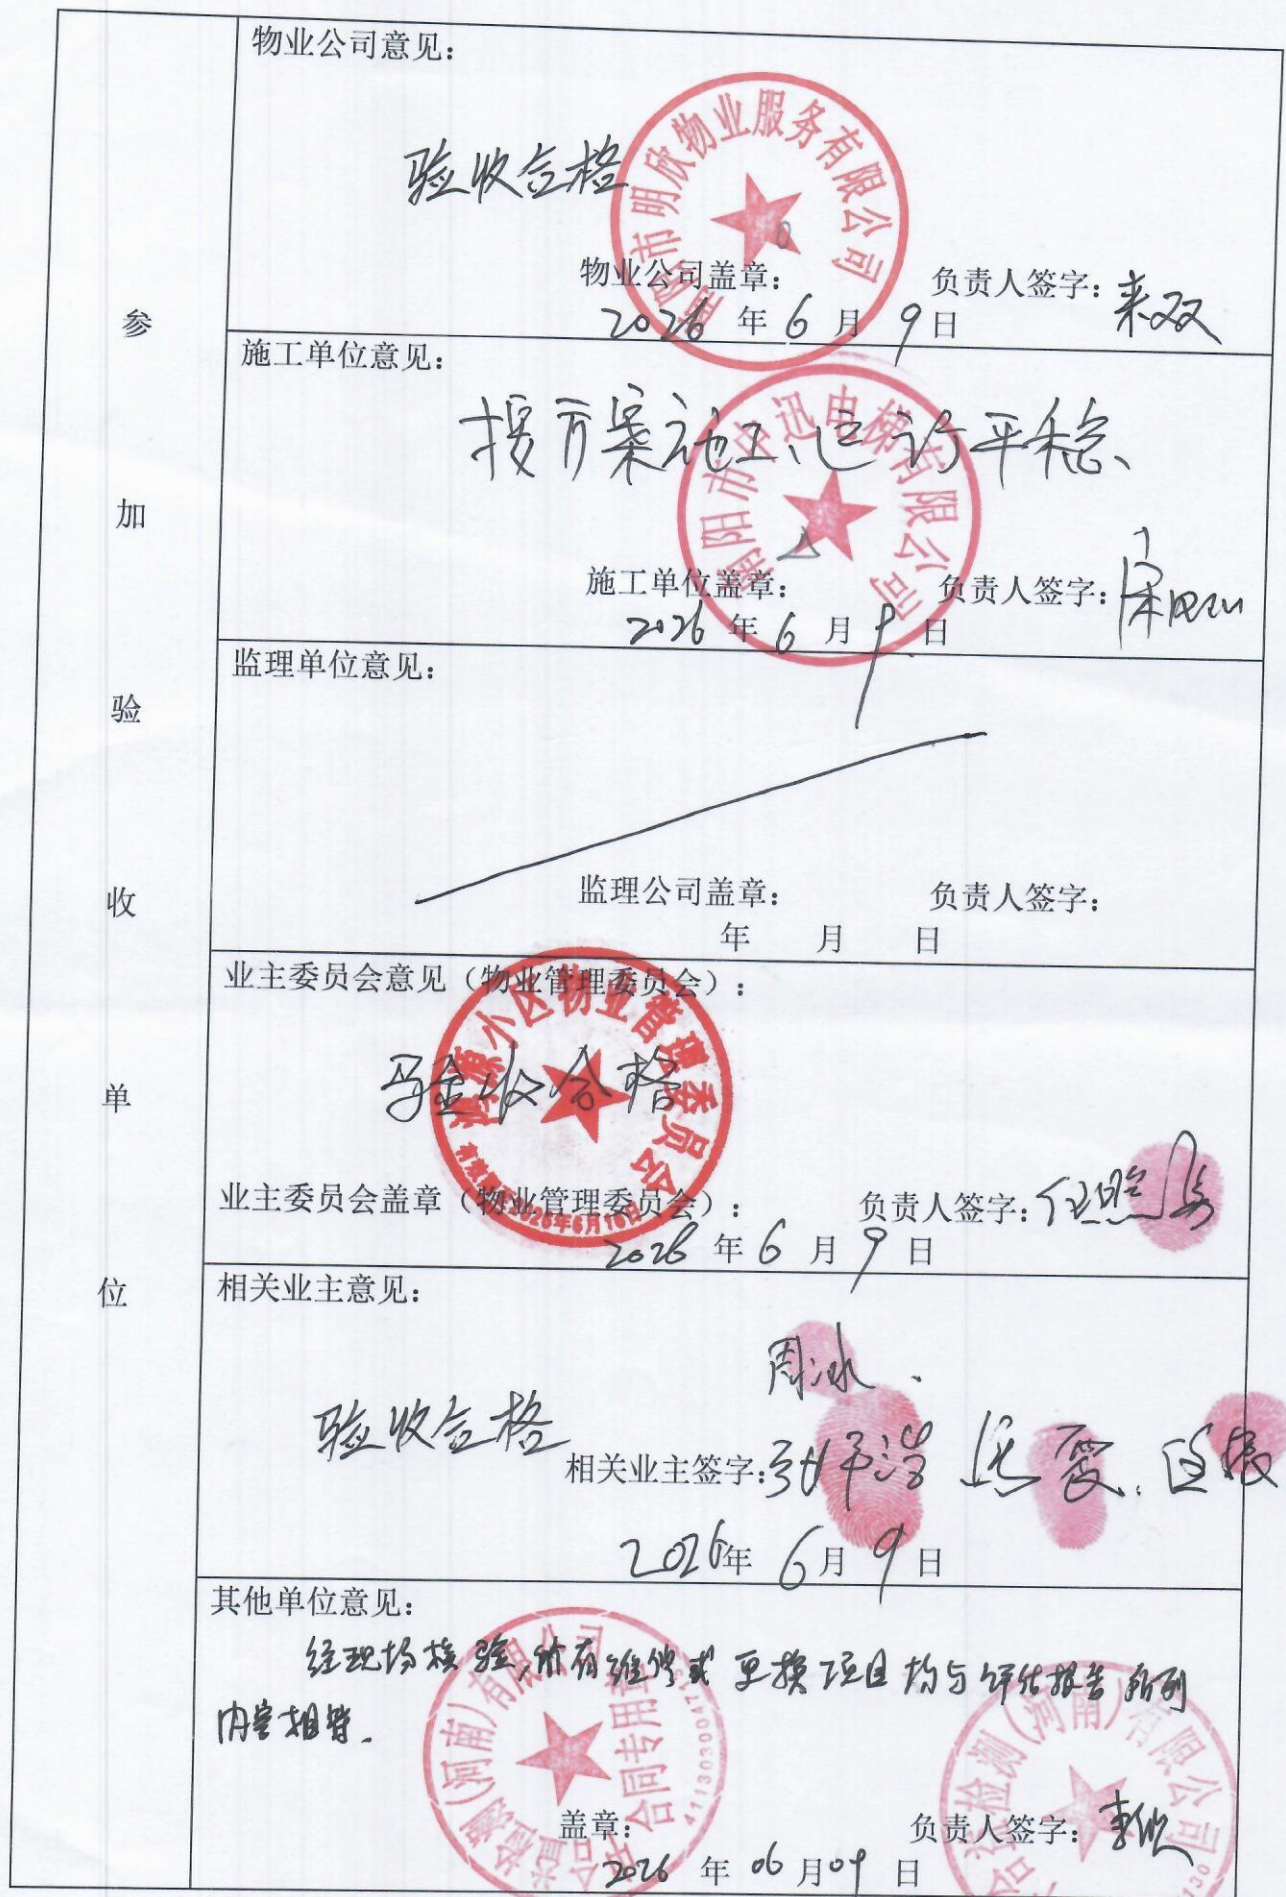 参加验收单位
物业公司意见：
验收合格
市明欣物业服务有限公司
物业公司盖章： 负责人签字：
2026 年 6 月 9 日
施工单位意见：
按方案施工、运行平稳、
南阳市中迅电梯有限公司
施工单位盖章： 负责人签字：
2026 年 6 月 9 日
监理单位意见：
监理公司盖章： 负责人签字：
年 月 日
业主委员会意见（物业管理委员会）：
小区物业管理委员会
验收合格
业主委员会盖章（物业管理委员会）： 负责人签字：
2026 年 6 月 9 日
相关业主意见：
周冰、
验收合格
相关业主签字：
2026年 6月 9日
其他单位意见：
经现场核验，所有维修或更换项目均与评估报告所列
内容相符.
检测（河南）有限公司
合同专用章
检测（河南）有限公司
盖章： 负责人签字：
2026 年 06 月 09 日